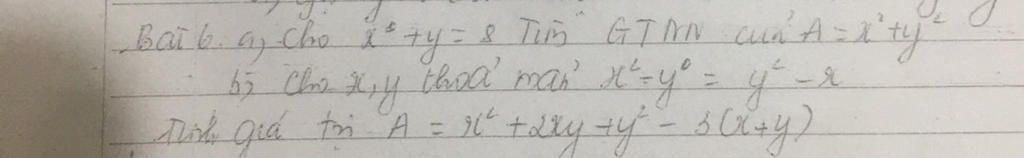 Bài 6. a, Cho x³ + y = 8 Tìm GTNN của A = x² + y²
b, Cho x, y thoả mãn x² - y⁰ = y² - x
Tính giá trị A = x² + 2xy + y² - 3(x+y)